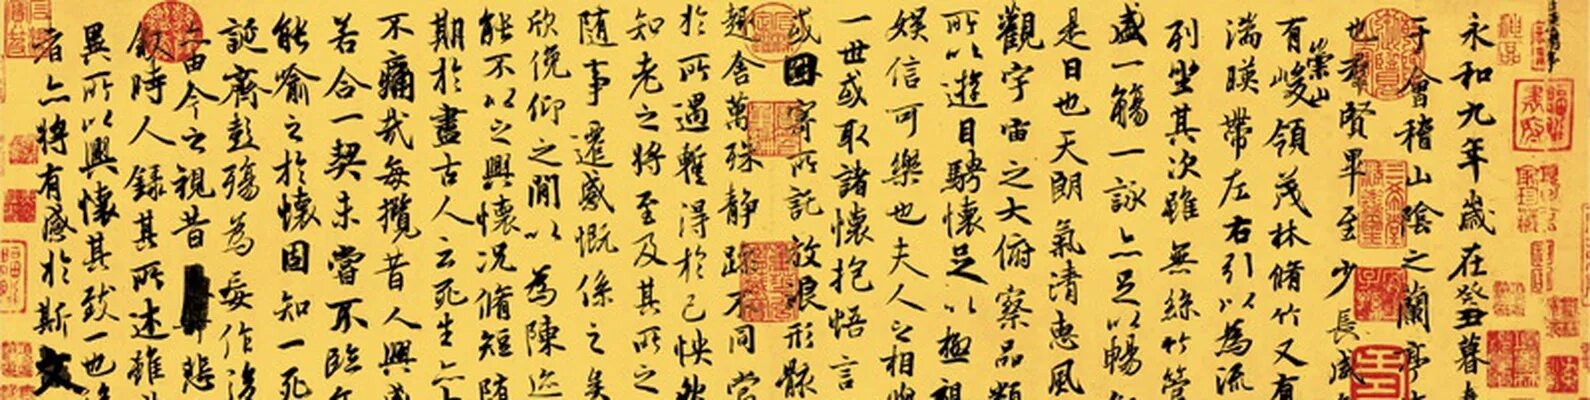 永和九年歲在癸丑暮春
于會稽山陰之蘭亭
也羣賢畢至少長咸
有崇山峻領茂林脩竹又有
湍暎帶左右引以為流
列坐其次雖無絲竹管
盛一觴一詠亦足以暢
是日也天朗氣清惠風
觀宇宙之大俯察品類
所以遊目騁懷足以極視
娛信可樂也夫人之相與
一世或取諸懷抱悟言
或因寄所託放浪形骸
趣舍萬殊靜躁不同當
於所遇蹔得於己怏然
知老之將至及其所之
隨事遷感慨係之矣
欣俛仰之間以為陳迹
能不以之興懷況脩短隨
期於盡古人云死生亦
不痛哉每攬昔人興感
若合一契未嘗不臨
能喻之於懷固知一死
誕齊彭殤為妄作後
亦由今之視昔悲
敘時人錄其所述雖
異所以興懷其致一也後
者亦將有感於斯文